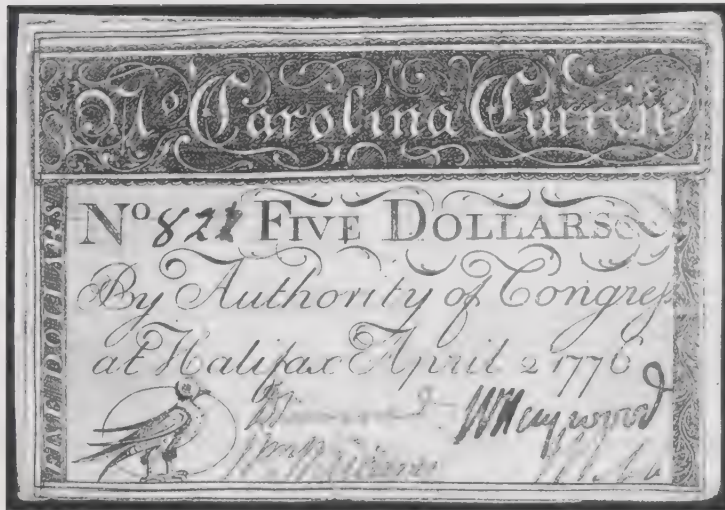 No Carolina Curren
No 821 FIVE DOLLARS
By Authority of Congress
at Halifax April 2 1776
WHaywood